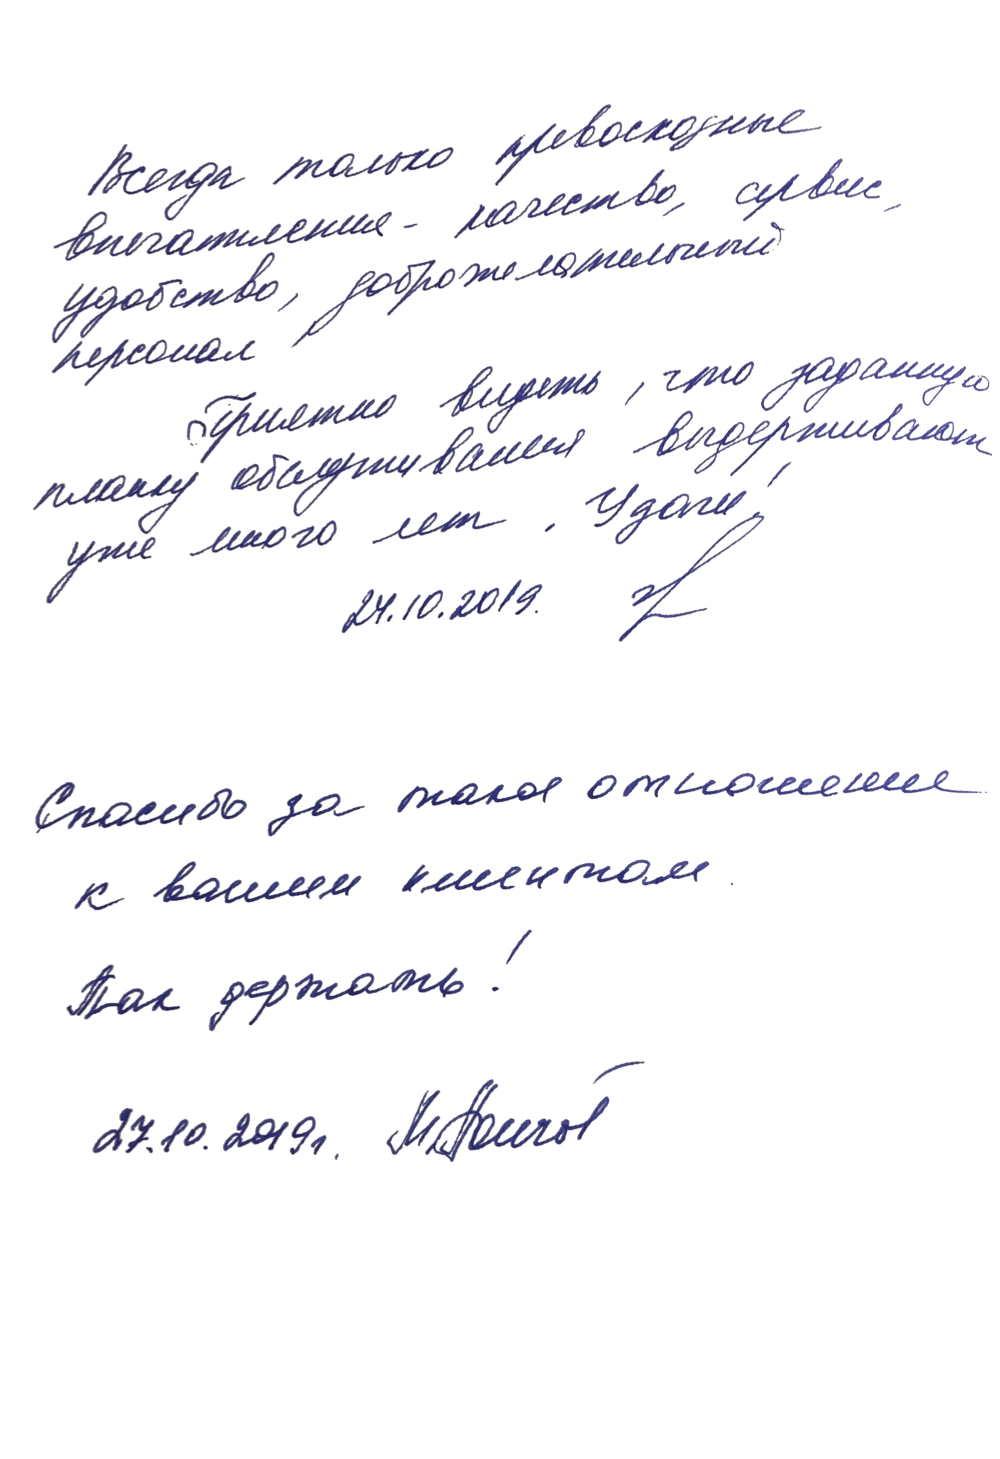 Всегда только превосходные
впечатления - качество, сервис,
удобство, доброжелательный
персонал
Приятно видеть, что заданную
планку обслуживания выдерживают
уже много лет. Удачи!
24.10.2019.
Спасибо за такое отношение
к вашим клиентам.
Так держать!
27.10.2019г.